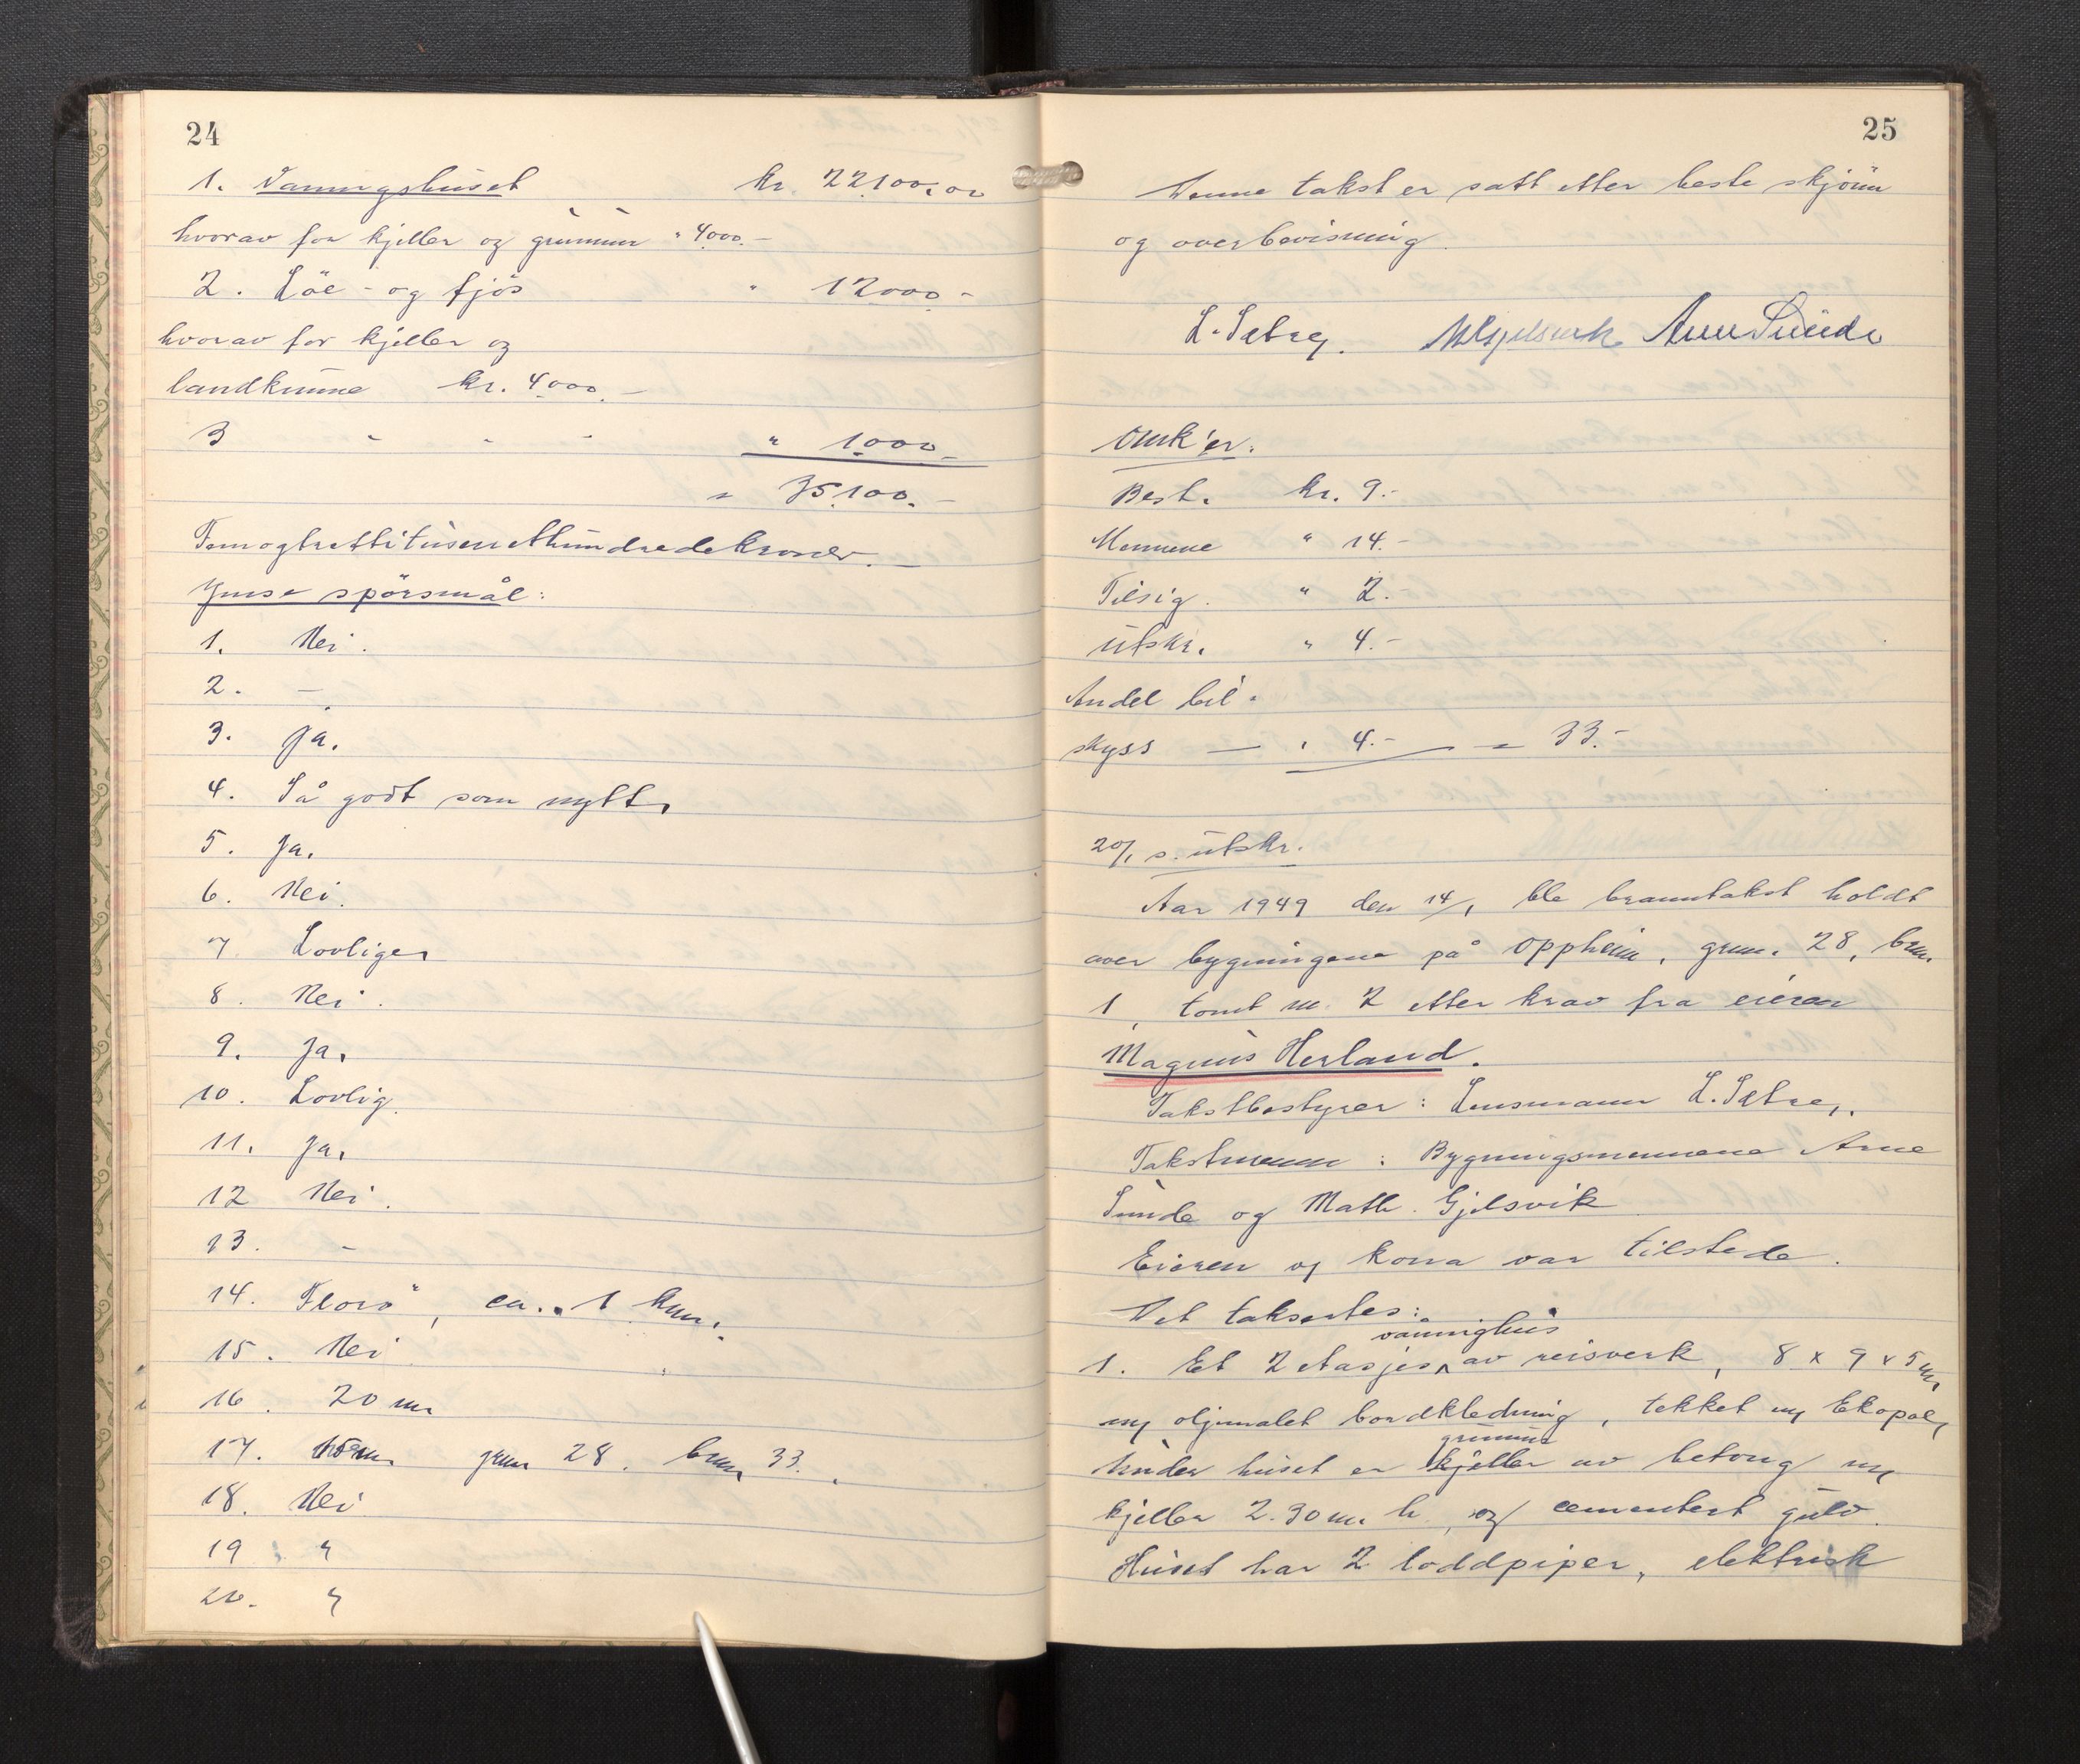 24
1. Vaningshuset kr. 22100,00
hvorav for kjeller og grunmur " 4000.-
2. Löe - og fjös " 12000 -
hvorav for kjeller og
landkumme kr. 4000.-
3 - - - " 1000.-
= 35100.-
Femogtrettitusenetthundredekroner.-
Ymse spörsmål:
1. Nei.
2. -
3. Ja.
4. Så godt som nytt.
5. Ja.
6. Nei.
7 Lovliger
8. Nei.
9. Ja.
10. Lovlig.
11. Ja.
12 Nei.
13. -
14. Florö, ca. 1 km.
15. Nei
16. 20 m
17. gnr 28. bnr 33.
18. Nei
19 "
20. "
25
Denne takst er satt etter beste skjönn
og overbevisning.
L. Sætre. MGjelsvik Arne Sunde
Omk'er:
Best. kr. 9.-
Mennene " 14.-
Tilsig. " 2.-
Utskr. " 4.-
Andel bil-
skyss — " 4.- = 33.-
20/1 s. utskr.
Aar 1949 den 14/1 ble branntakst holdt
over bygningene på Oppheim, gnr. 28, bnr.
1, tomt nr. 2 etter krav fra eieren
Magnus Herland.
Takstbestyrer: Lensmann L. Sætre,.
Takstmenn: Bygningsmennene Arne
Sunde og Math. Gjelsvik
Eieren og kona var tilstede.
Det taksertes:
våninghus
1. Et 2 etasjes av reisverk, 8 x 9 x 5 m
m oljemalet bordkledning, tekket m Ekopal,
grunmur
Under huset er kjeller av betong m
kjeller 2.30 m. h. og cementert gulv.
Huset har 2 loddpiper, elektrisk